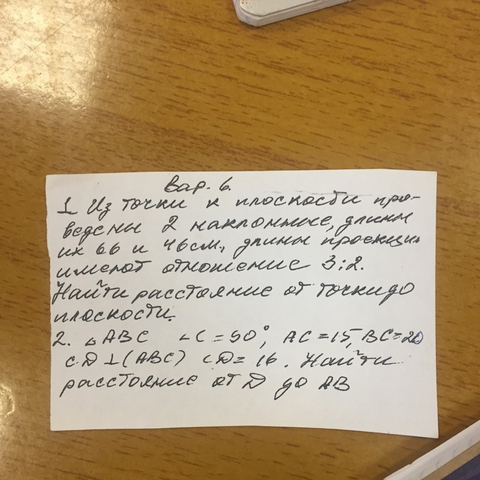 Вар. 6.
1 Из точки к плоскости про-
ведены 2 наклонные, длины
их 66 и 46 см, длины проекции
имеют отношение 3:2.
Найти расстояние от точки до
плоскости.
2. △ABC ∠C = 90°, AC = 15, BC = 20
CD ⊥ (ABC) CD = 16. Найти
расстояние от D до AB